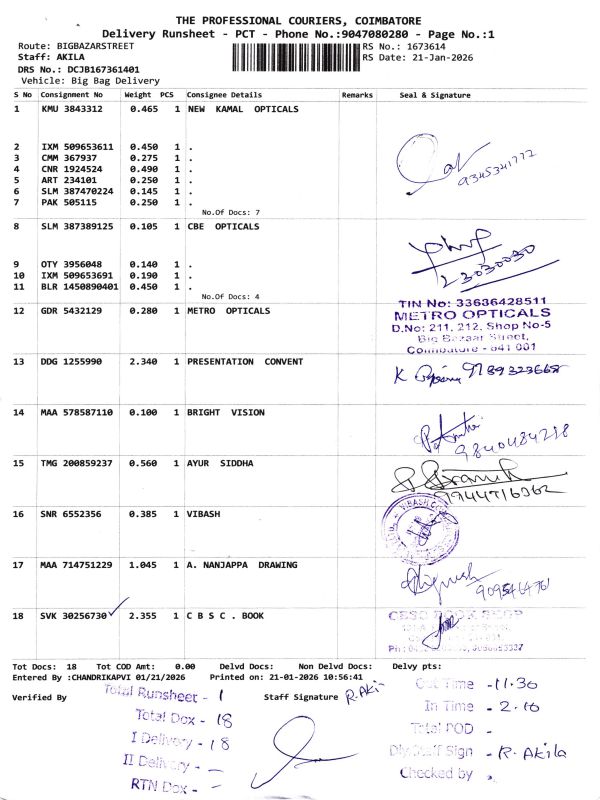 THE PROFESSIONAL COURIERS, COIMBATORE
Delivery Runsheet - PCT - Phone No.:9047080280 - Page No.:1
Route: BIGBAZARSTREET
RS No.: 1673614
Staff: AKILA
RS Date: 21-Jan-2026
DRS No.: DCJB167361401
Vehicle: Big Bag Delivery
S No Consignment No Weight PCS Consignee Details Remarks Seal & Signature
1 KMU 3843312 0.465 1 NEW KAMAL OPTICALS
2 IXM 509653611 0.450 1 .
3 CMM 367937 0.275 1 .
4 CNR 1924524 0.490 1 .
5 ART 234101 0.250 1 .
6 SLM 387470224 0.145 1 .
7 PAK 505115 0.250 1 .
No.Of Docs: 7
9345341772
8 SLM 387389125 0.105 1 CBE OPTICALS
9 OTY 3956048 0.140 1 .
10 IXM 509653691 0.190 1 .
11 BLR 1450890401 0.450 1 .
No.Of Docs: 4
23030030
12 GDR 5432129 0.280 1 METRO OPTICALS
TIN No: 33636428511
METRO OPTICALS
D.No: 211, 212, Shop No-5
Big Bazaar Street,
Coimbatore - 641 001
13 DDG 1255990 2.340 1 PRESENTATION CONVENT
K 9789323668
14 MAA 578587110 0.100 1 BRIGHT VISION
9840484218
15 TMG 200859237 0.560 1 AYUR SIDDHA
9944716362
16 SNR 6552356 0.385 1 VIBASH
VIBASH
17 MAA 714751229 1.045 1 A. NANJAPPA DRAWING
18 SVK 30256730 2.355 1 C B S C . BOOK
BOOK SHOP
Tot Docs: 18 Tot COD Amt: 0.00 Delvd Docs: Non Delvd Docs: Delvy pts:
Entered By :CHANDRIKAPVI 01/21/2026 Printed on: 21-01-2026 10:56:41
Verified By
Staff Signature R.Aki
Total Runsheet - 1
Total Dox - 18
I Delivery - 18
II Delivery - -
RTN Dox - -
Out Time - 11.30
In Time - 2.10
Total POD -
Dly.Staff Sign - R. Akila
Checked by -